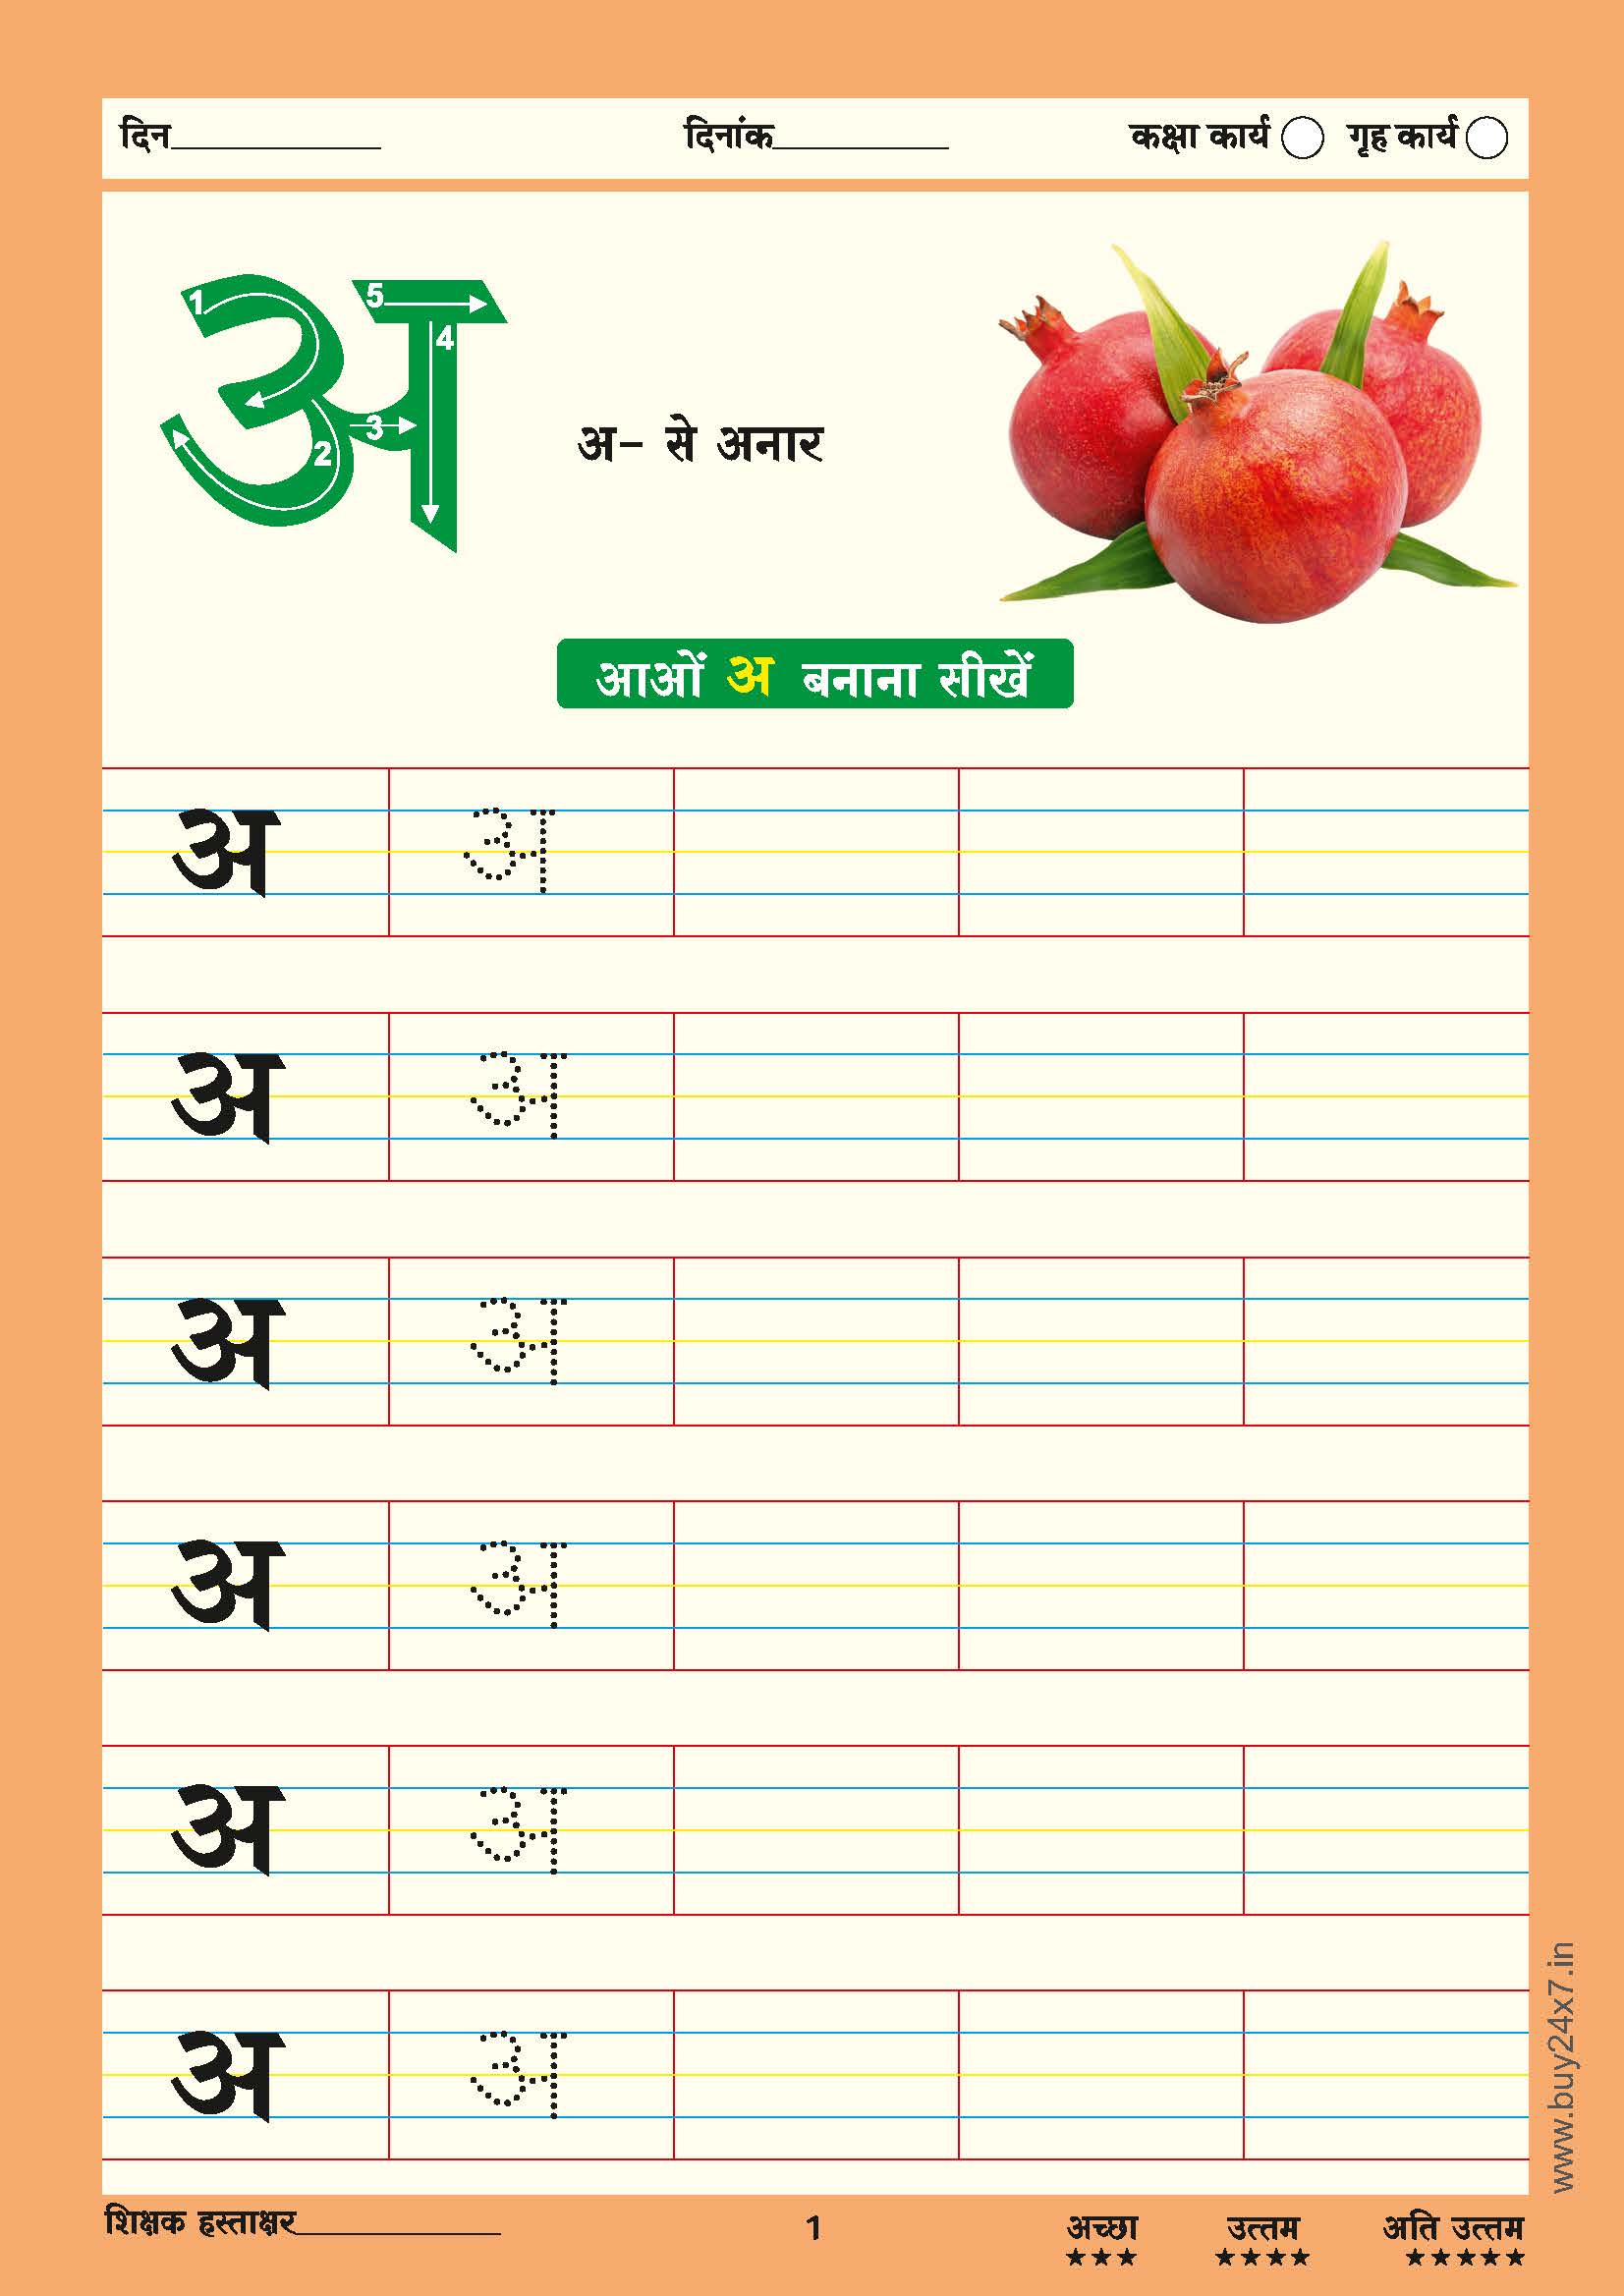 दिन__________ दिनांक__________ कक्षा कार्य गृह कार्य
1 5
4
3
2
अ- से अनार
आओं अ बनाना सीखें
अ अ
अ अ
अ अ
अ अ
अ अ
अ अ
www.buy24x7.in
शिक्षक हस्ताक्षर__________ 1 अच्छा उत्तम अति उत्तम
★★★ ★★★★ ★★★★★